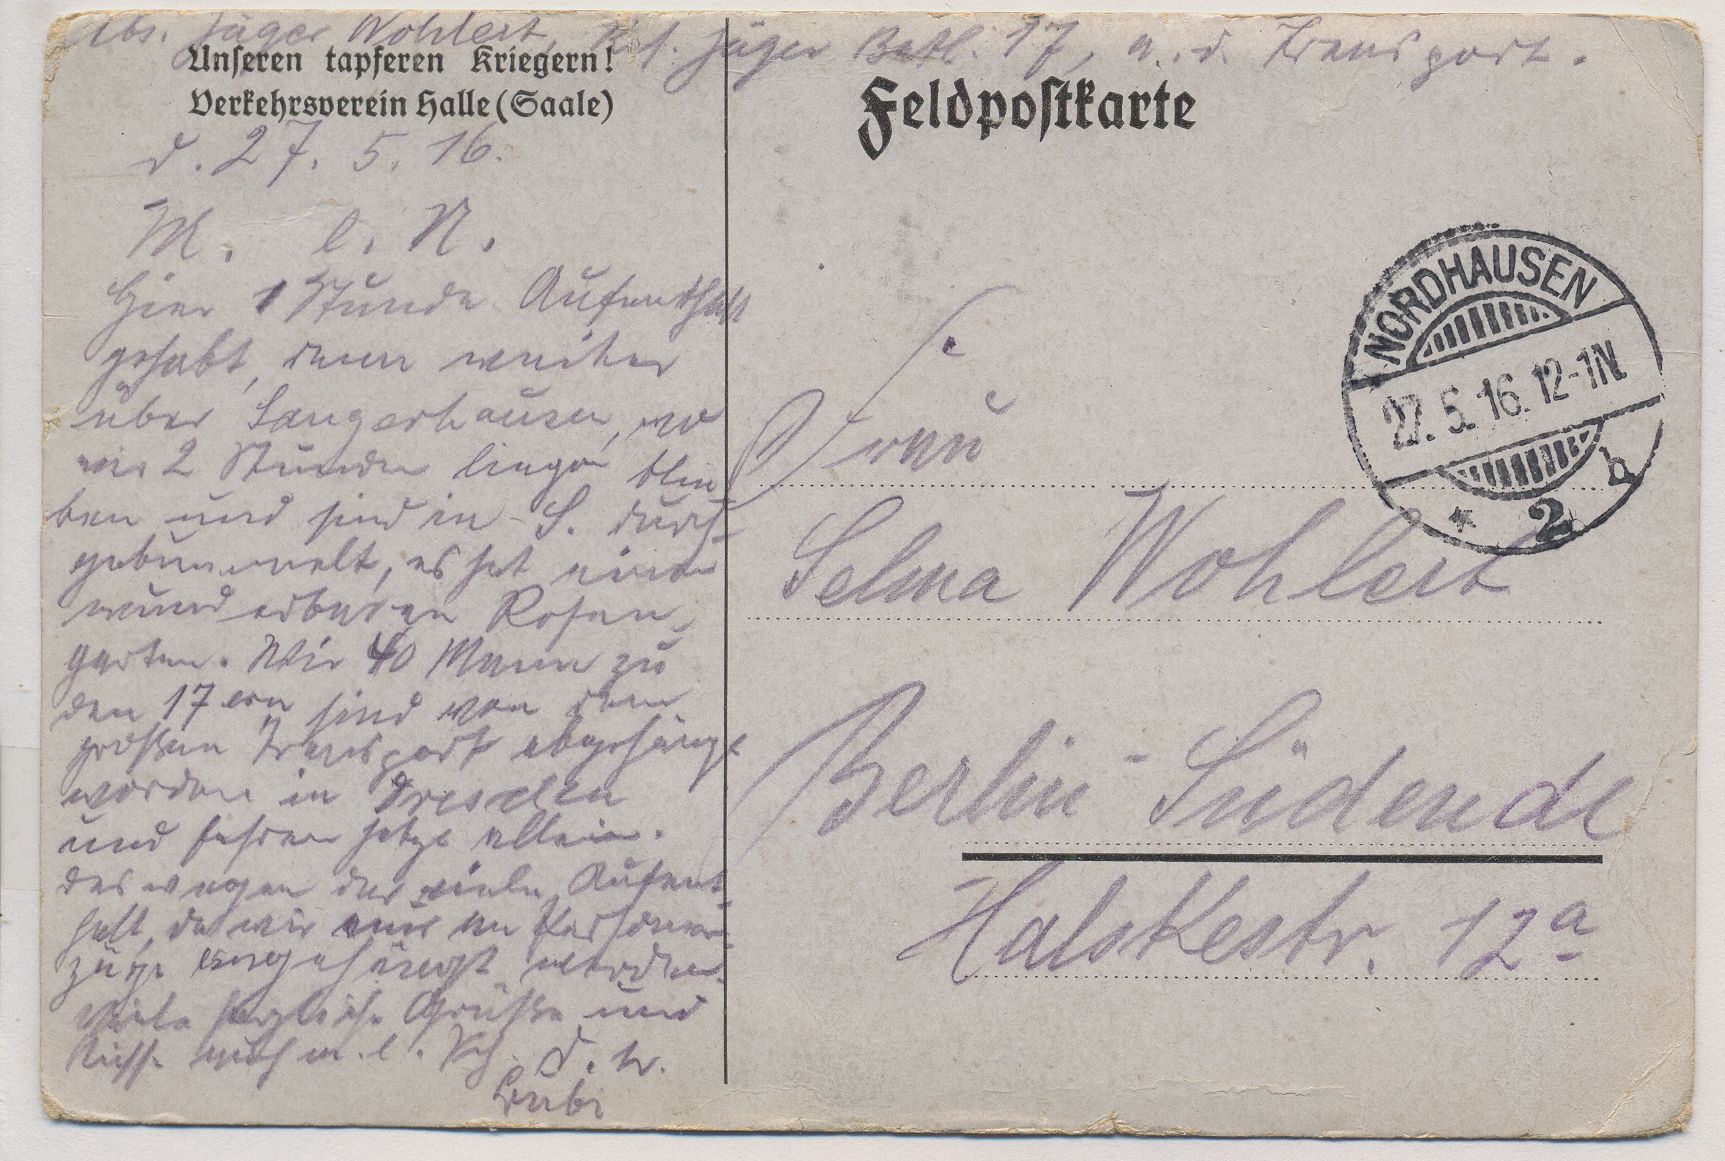 Abs. Jäger Wohlert, Res. Jäger Batl. 17, a. d. Transport.
Unseren tapferen Kriegern!
Verkehrsverein Halle (Saale)
d. 27. 5. 16.
M. l. N.
Hier 1 Stunde Aufenthalt
gehabt, dann weiter
über Sangerhausen, wo
wir 2 Stunden liegen blie-
ben und sind in S. durch-
gebummelt, es hat einen
wunderbaren Rosen-
garten. Wir 40 Mann zu
den 17ern sind von dem
großen Transport abgehängt
worden in Dresden
und fahren jetzt allein.
deswegen der viele Aufent-
halt, da wir nur an Personen-
züge angehängt werden.
Viele herzliche Grüße und
Küsse auch m. l. Sch. D. tr.
Bubi
Feldpostkarte
NORDHAUSEN
27. 5. 16. 12-1N.
* 2 b
Frau
Selma Wohlert
Berlin-Südende
Halskestr. 12a